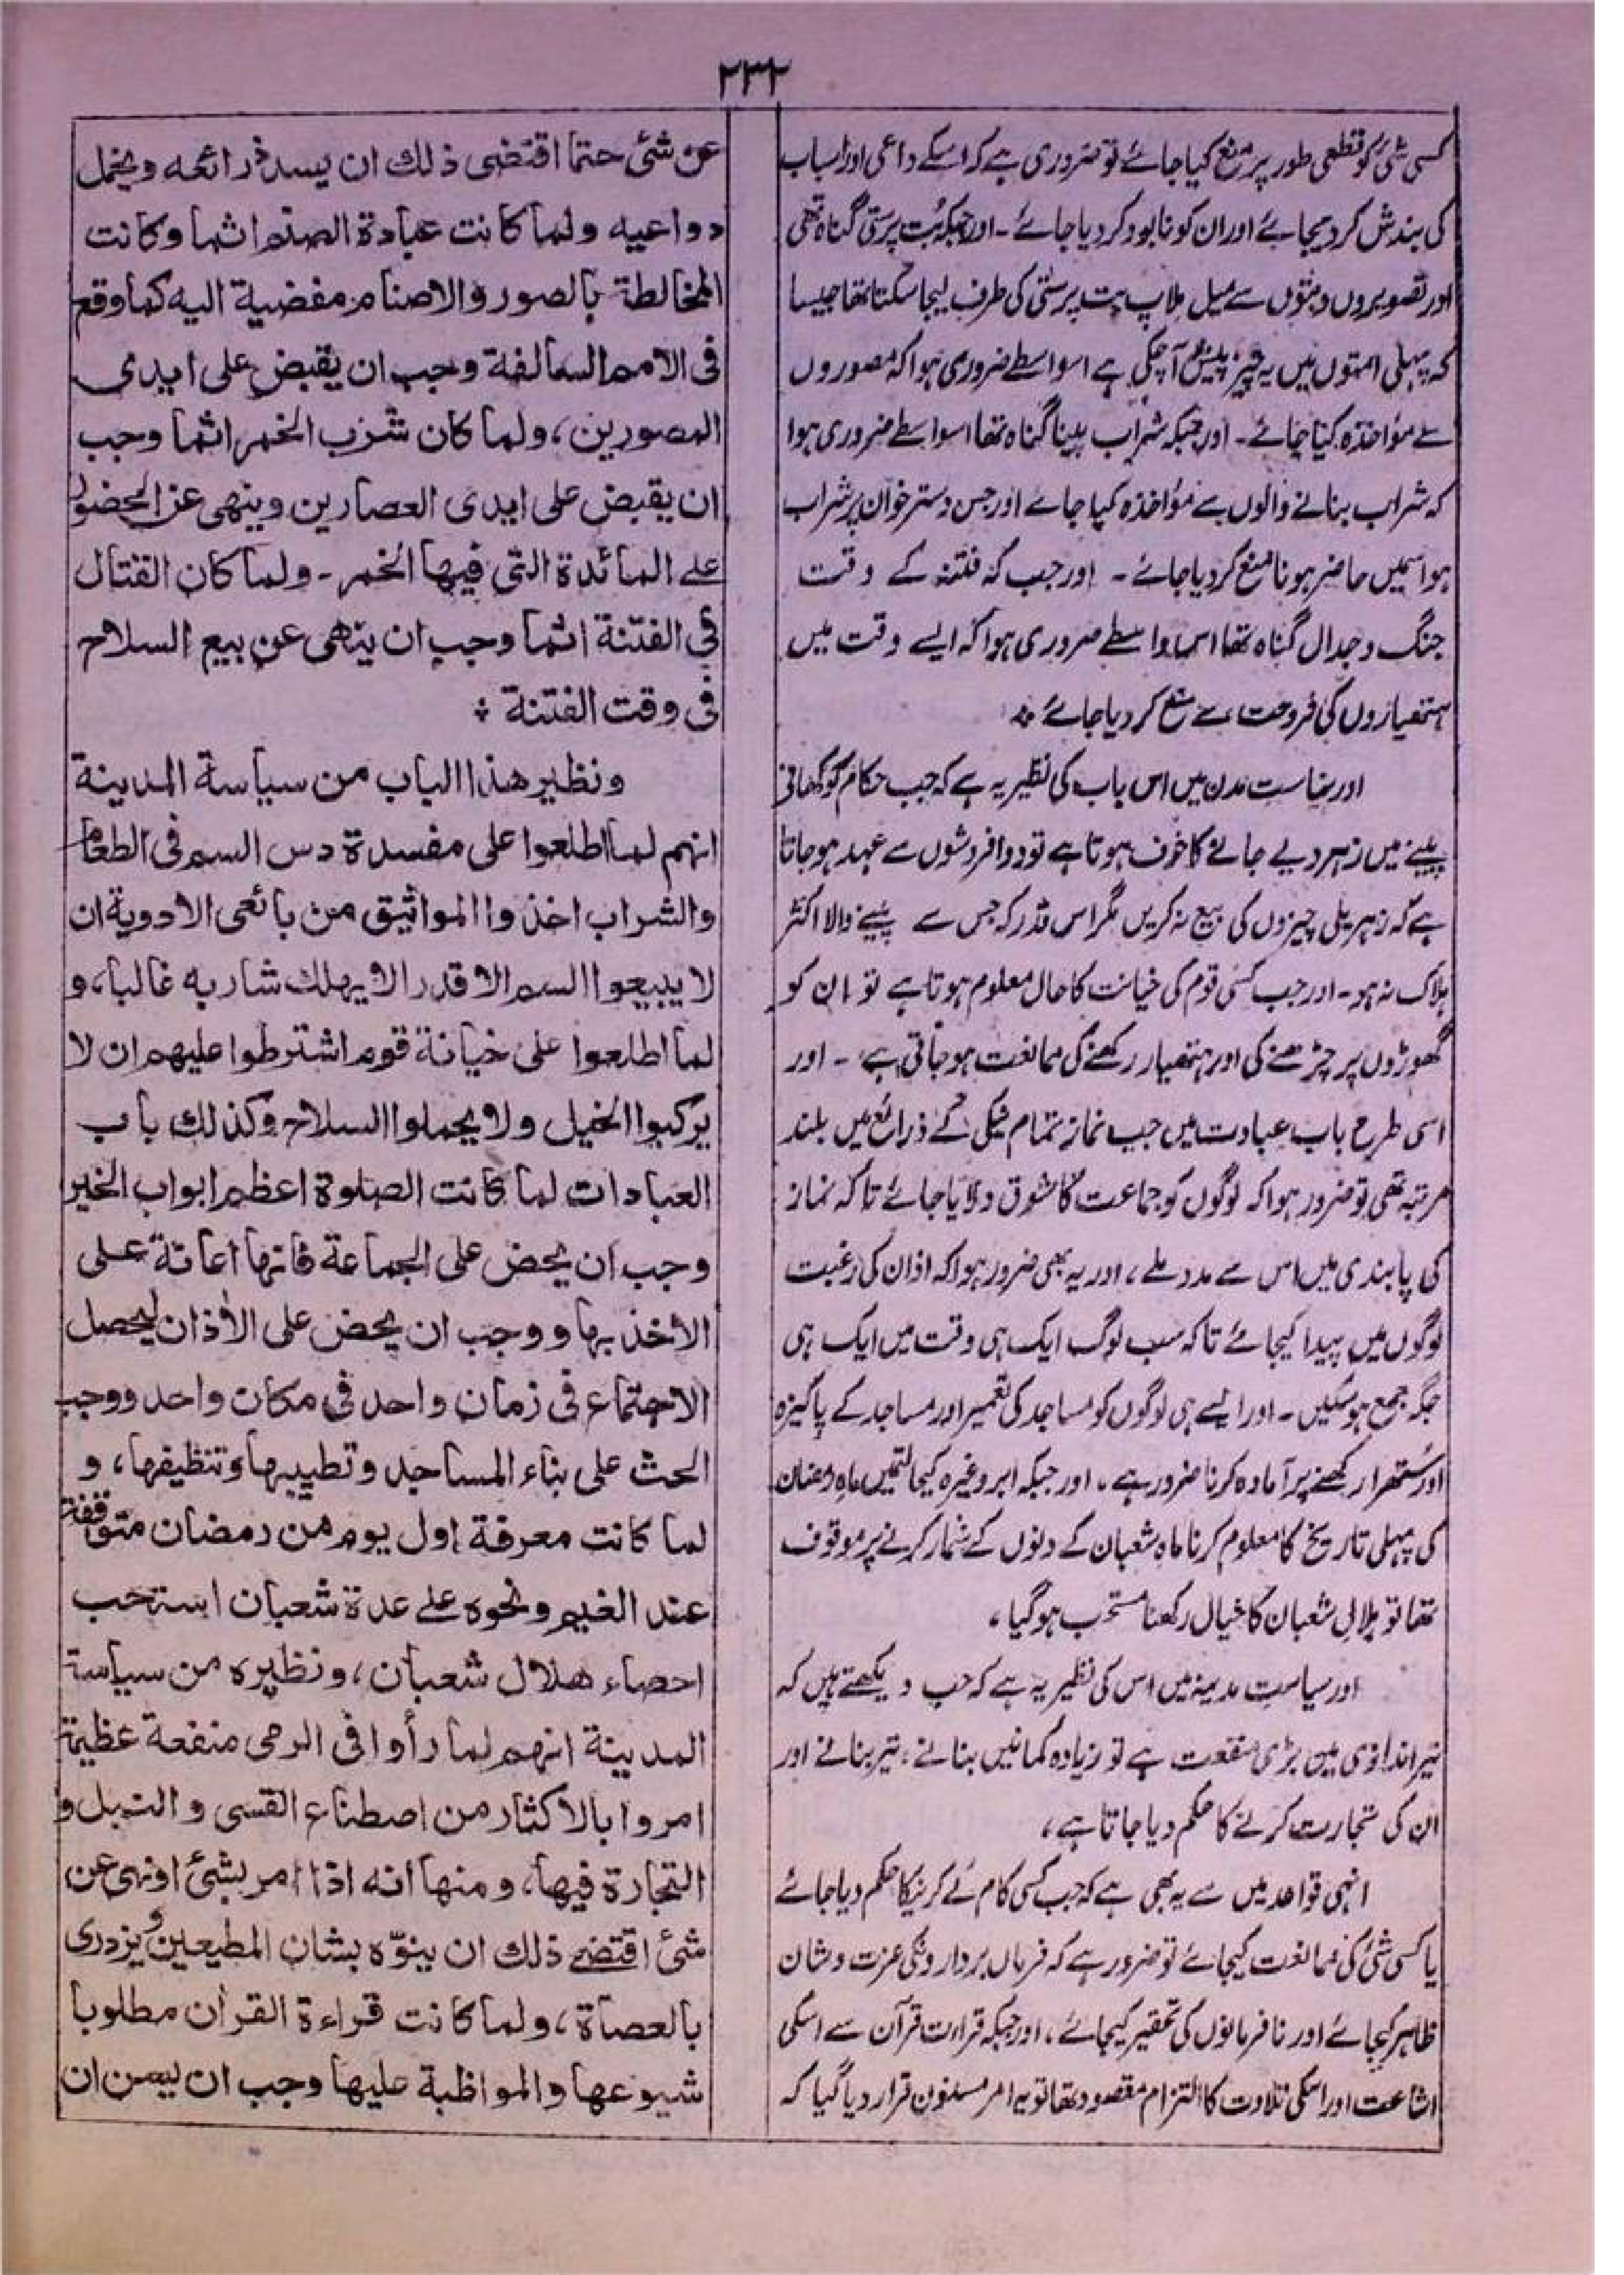 ۲۳۲
کسی شئ کو قطعی طور پر منع کیا جائے تو ضروری ہے کہ اسکے داعی اور اسباب
کی بندش کر دیجائے اور ان کو نابود کر دیا جائے ۔ اور جبکہ بُت پرستی گناہ تھی
اور تصویروں و بتوں سے میل ملاپ بت پرستی کی طرف لیجا سکتا تھا جیسا
کہ پہلی امتوں میں یہ چیز پیش آ چکی ہے اسواسطے ضروری ہوا کہ مصوروں
سے مؤاخذہ کیا جائے ۔ اور جبکہ شراب پینا گناہ تھا اسواسطے ضروری ہوا
کہ شراب بنانے والوں سے مؤاخذہ کیا جائے اور جس دسترخوان پر شراب
ہو اسمیں حاضر ہونا منع کر دیا جائے ۔ اور جب کہ فتنہ کے وقت
جنگ و جدال گناہ تھا اسواسطے ضروری ہوا کہ ایسے وقت میں
ہتھیاروں کی فروخت سے منع کر دیا جائے ۔
اور سیاست مدن میں اس باب کی نظیر یہ ہے کہ جب حکام کو کھانے
پینے میں زہر دیے جانے کا خوف ہوتا ہے تو دوا فروشوں سے عہد ہو جاتا
ہے کہ زہریلی چیزوں کی بیع نہ کریں مگر اس قدر کہ جس سے پینے والا اکثر
ہلاک نہ ہو ۔ اور جب کسی قوم کی خیانت کا حال معلوم ہوتا ہے تو ان کو
گھوڑوں پر چڑھنے کی اور ہتھیار رکھنے کی ممانعت ہو جاتی ہے ۔ اور
اسی طرح باب عبادت میں جب نماز تمام نیکی کے ذرائع میں بلند
مرتبہ تھی تو ضرور ہوا کہ لوگوں کو جماعت کا شوق دلایا جائے تاکہ نماز
کی پابندی میں اس سے مدد ملے ، اور یہ بھی ضرور ہوا کہ اذان کی رغبت
لوگوں میں پیدا کیجائے تاکہ سب لوگ ایک ہی وقت میں ایک ہی
جگہ جمع ہو سکیں ۔ اور ایسے ہی لوگوں کو مساجد کی تعمیر اور مساجد کے پاکیزہ
اور ستھرا رکھنے پر آمادہ کرنا ضرور ہے ۔ اور جبکہ ابر وغیرہ کیحالتمیں ماہ رمضان
کی پہلی تاریخ کا معلوم کرنا ماہ شعبان کے دنوں کے شمار کرنے پر موقوف
تھا تو ہلالِ شعبان کا خیال رکھنا مستحب ہو گیا ،
اور سیاست مدینہ میں اس کی نظیر یہ ہے کہ جب دیکھتے ہیں کہ
تیراندازی میں بڑی منفعت ہے تو زیادہ کمانیں بنانے ، تیر بنانے اور
ان کی تجارت کرنے کا حکم دیا جاتا ہے ،
انہی قواعد میں سے یہ بھی ہے کہ جب کسی کام کے کرنیکا حکم دیا جائے
یا کسی شئ کی ممانعت کیجائے تو ضرور ہے کہ فرماں برداروں کی عزت و شان
ظاہر کیجائے اور نافرمانوں کی تحقیر کیجائے ، اور جبکہ قراءت قرآن سے اسکی
اشاعت اور اسکی تلاوت کا التزام مقصود تھا تو یہ امر مسنون قرار دیا گیا کہ
عن شئ حتما اقتضى ذلك ان يسد ذرائعه ويخمل
دواعيه ولما كانت عبادة الصنم اثما وكانت
المخالطة بالصور والاصنام مفضية اليه كما وقع
فى الامم السالفة وجب ان يقبض على ايدى
المصورين، ولما كان شرب الخمر اثما وجب
ان يقبض على ايدى العصارين وينهى عن الحضور
على المائدة التى فيها الخمر ـ ولما كان القتال
فى الفتنة اثما وجب ان ينهى عن بيع السلاح
فى وقت الفتنة ؞
ونظير هذا الباب من سياسة المدينة
انهم لما اطلعوا على مفسدة دس السم فى الطعام
والشراب اخذوا المواثيق من بائعى الادوية ان
لا يبيعوا السم الا قدر الا يهلك شاربه غالبا، و
لما اطلعوا على خيانة قوم اشترطوا عليهم ان لا
يركبوا الخيل ولا يحملوا السلاح وكذلك باب
العبادات لما كانت الصلوة اعظم ابواب الخير
وجب ان يحض على الجماعة فانها اعانة على
الاخذ بها ووجب ان يحض على الاذان ليحصل
الاجتماع فى زمان واحد فى مكان واحد ووجب
الحث على بناء المساجد وتطييبها وتنظيفها، و
لما كانت معرفة اول يوم من رمضان متوقفة
عند الغيم ونحوه على عدة شعبان استحب
احصاء هلال شعبان، ونظيره من سياسة
المدينة انهم لما رأوا فى الرمى منفعة عظيمة
امروا بالاكثار من اصطناع القسى والنبل و
التجارة فيها، ومنها انه اذا امر بشئ او نهى عن
شئ اقتضى ذلك ان ينوّه بشان المطيعين ويزدرى
بالعصاة، ولما كانت قراءة القران مطلوبا
شيوعها والمواظبة عليها وجب ان يسن ان